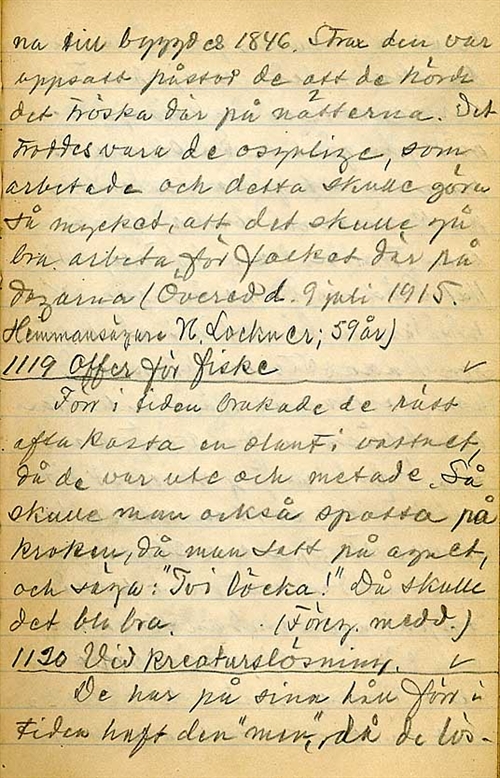 na till byggdes 1846. Strax den var
uppsatt påstod de att de hörde
det tröska där på nätterna. Det
troddes vara de osynlige, som
arbetade och detta skulle göra
så mycket, att det skulle gå
bra arbeta för folket där på
dagarna (Övered d. 9 juli 1915.
Hemmansägare N. Lockner; 59 år)
1119 Offer för fiske
Förr i tiden brukade de rätt
ofta kasta en slant i vattnet,
då de var ute och metade. Så
skulle man också spotta på
kroken, då man satt på agnet,
och säga: "Tvi löcka!" Då skulle
det bli bra. (Föreg. medd.)
1120 Vid kreaturslösning.
De har på sina håll förr i
tiden haft den "men", då de lös-